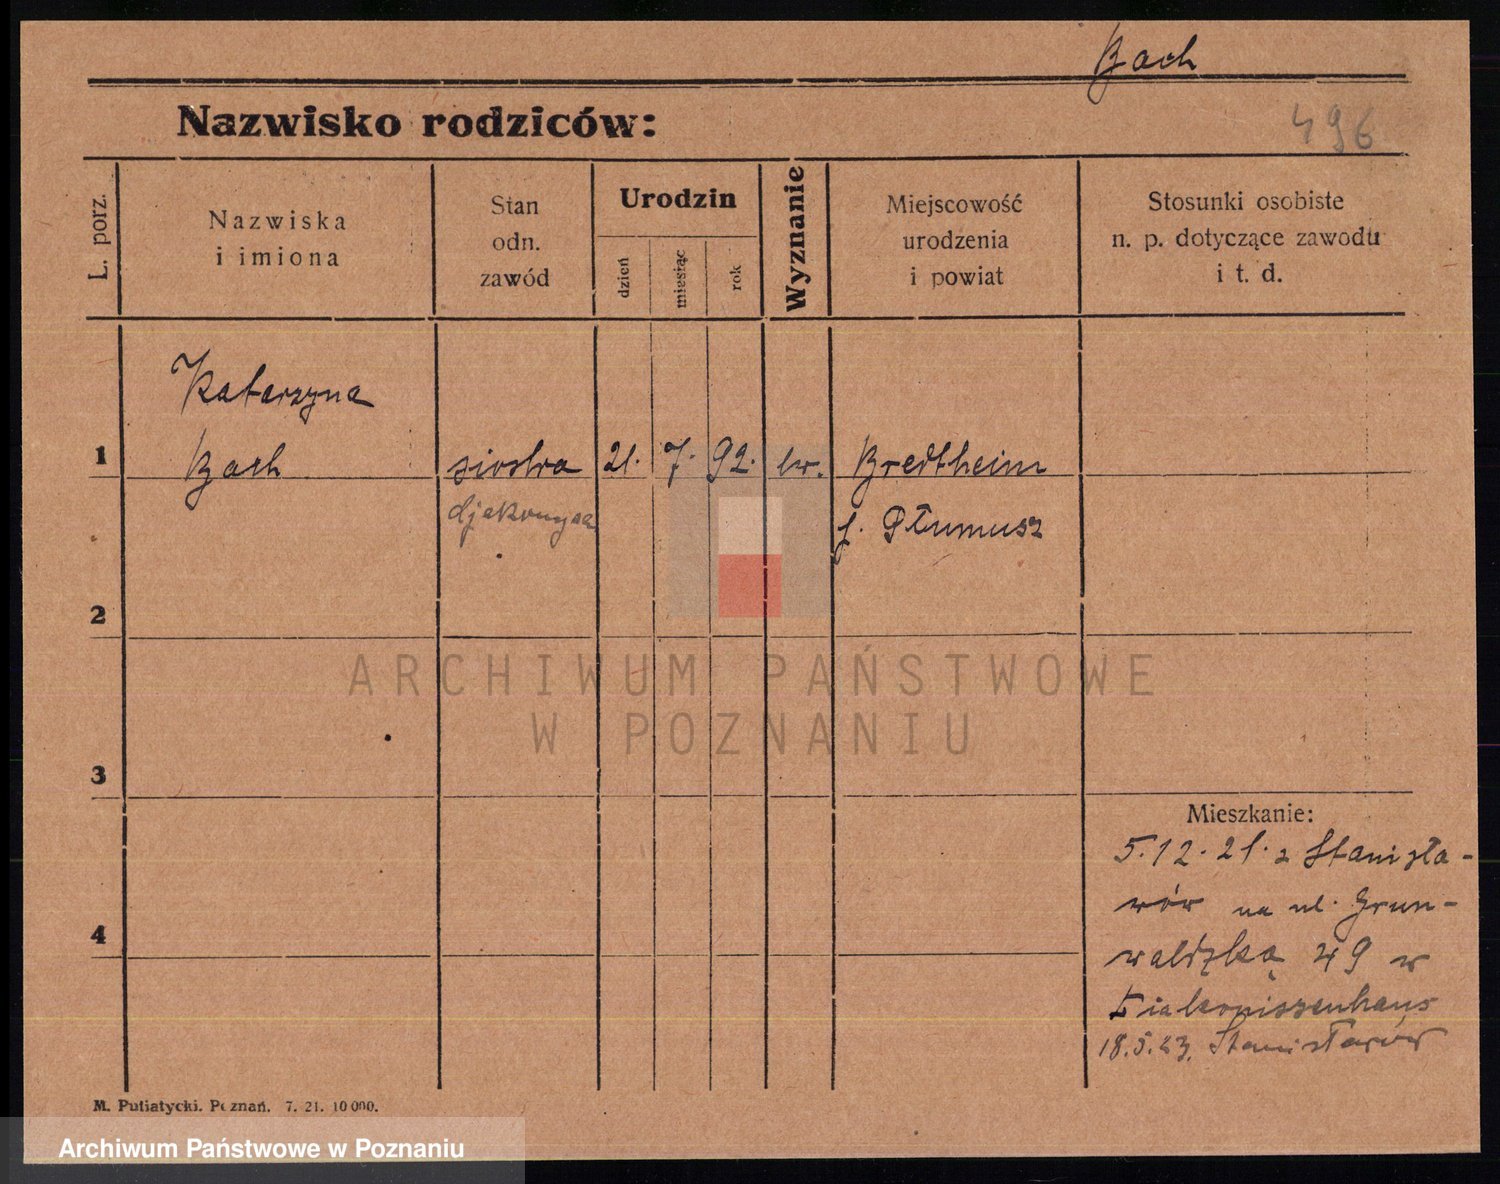 Bach
Nazwisko rodziców:
496
L. porz.
Nazwiska
i imiona
Stan
odn.
zawód
Urodzin
dzień
miesiąc
rok
Wyznanie
Miejscowość
urodzenia
i powiat
Stosunki osobiste
n. p. dotyczące zawodu
i t. d.
Katarzyna
1 Bach siostra 21. 7. 92. ew. Bredtheim
djakonysa
p. Tłumusz
2
ARCHIWUM PAŃSTWOWE
W POZNANIU
3
Mieszkanie:
5.12.21. z Stanisła-
wów na ul. Grun-
waldzką 49 w
4
Diakonissenhaus
18.5.23. Stanisławów
M. Putiatycki. Poznań. 7. 21. 10 000.
Archiwum Państwowe w Poznaniu